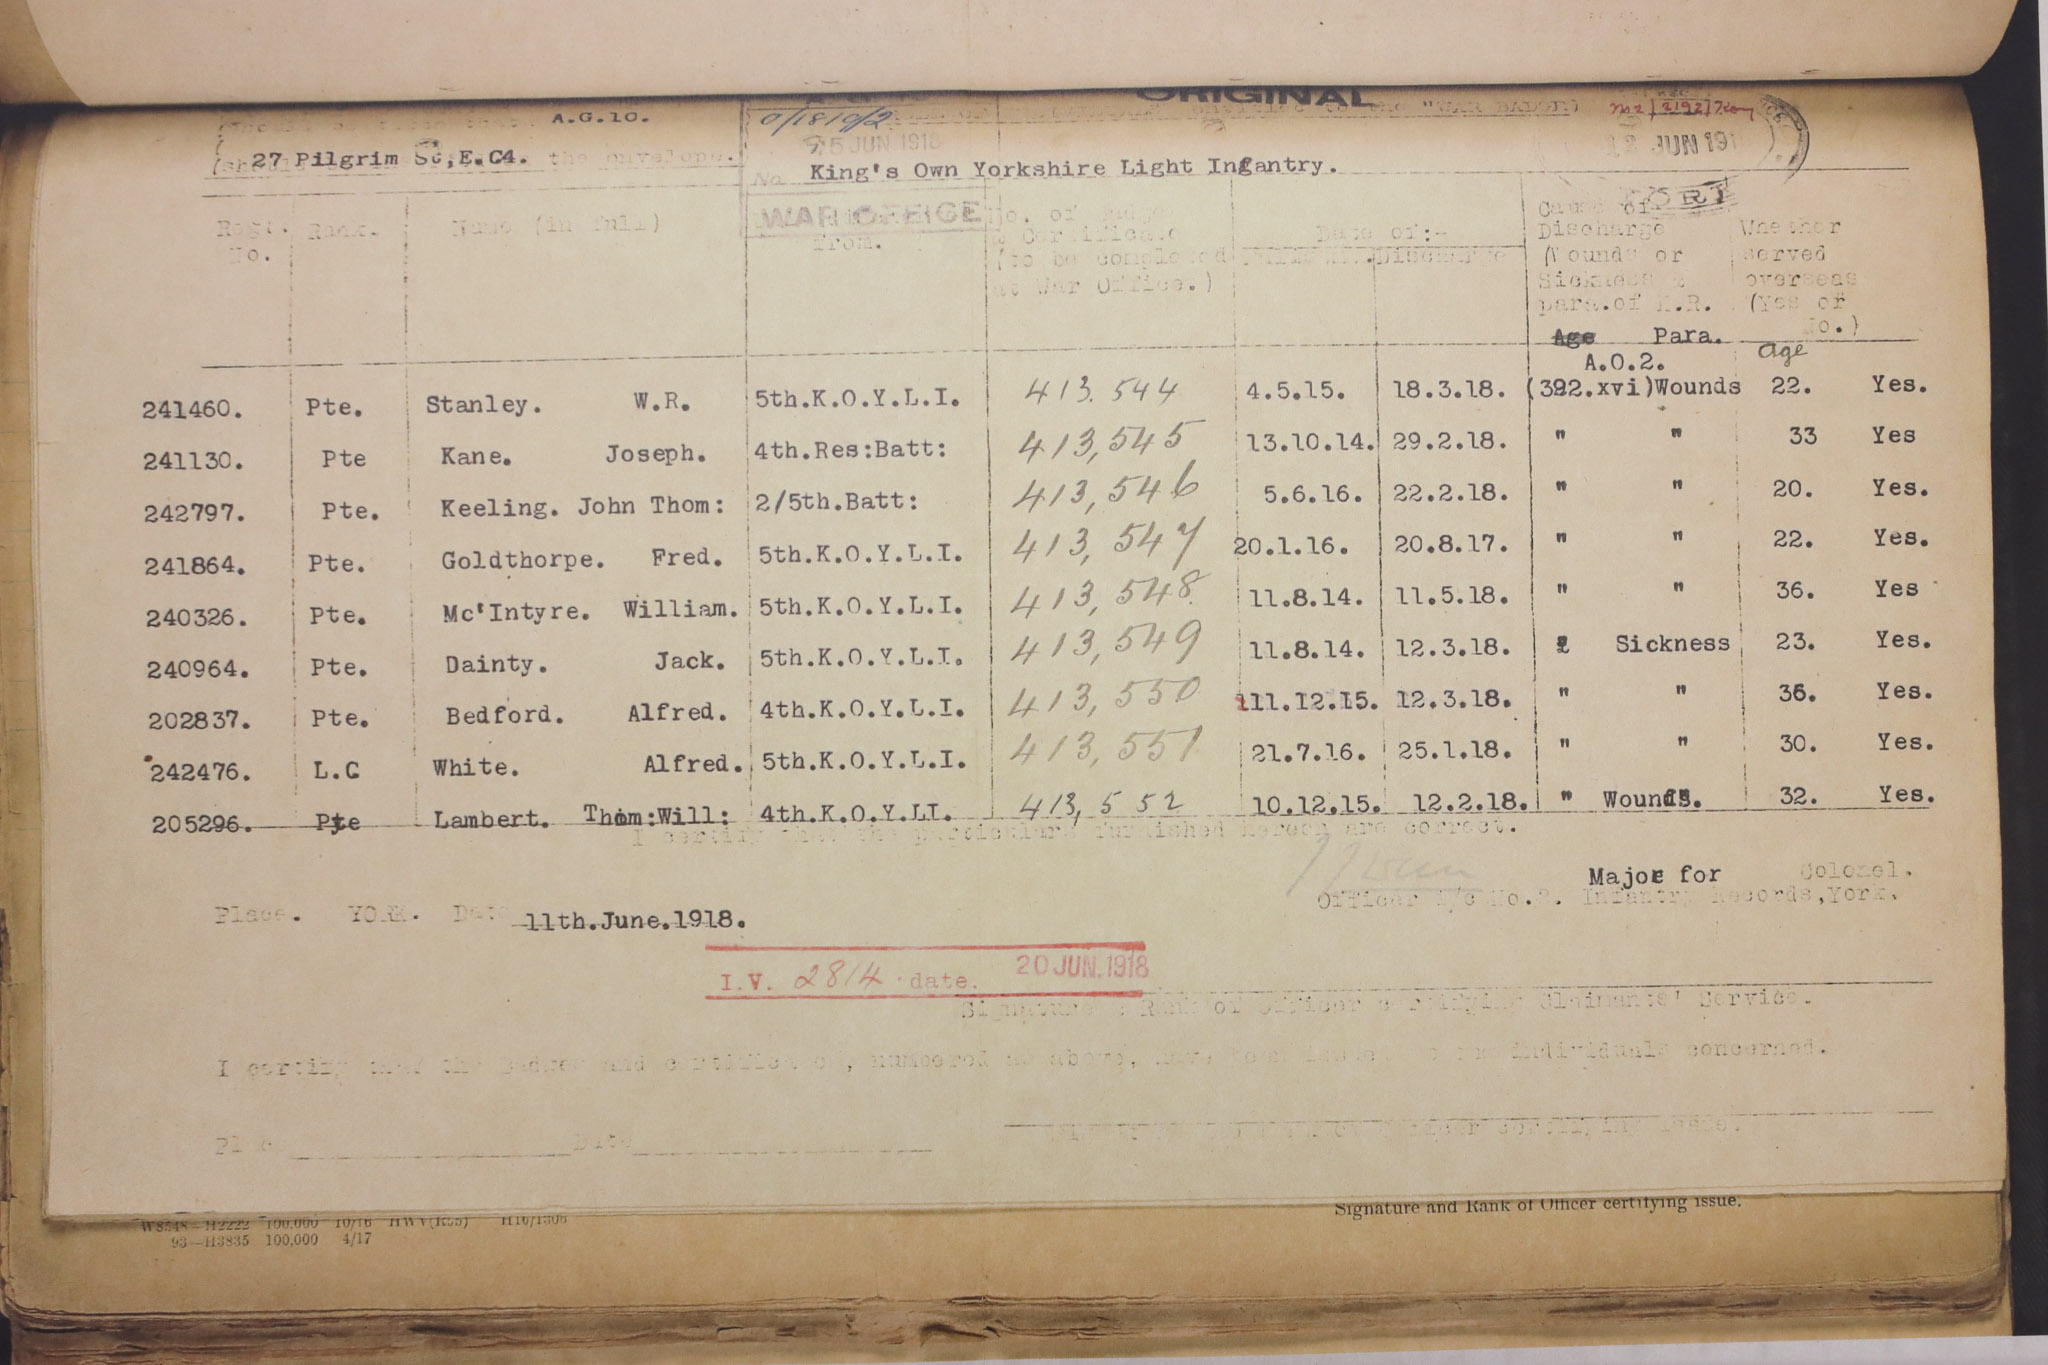 ORIGINAL
A.G.10.
"WAR BADGE)
5 JUN 1918
12 JUN 191
27 Pilgrim St,E.C4. the envelope.
No King's Own Yorkshire Light Infantry.
WAR OFFICE
Regt. No. Rank. Name (in full) from. No. of Badge & Certificate (to be completed at War Office.) Date of:- Discharge Cause of Discharge (Wounds or Sickness & para.of K.R. Whether served overseas (Yes or No.)
Age Para. age
A.O.2.
241460. Pte. Stanley. W.R. 5th.K.O.Y.L.I. 413.544 4.5.15. 18.3.18. (392.xvi)Wounds 22. Yes.
241130. Pte Kane. Joseph. 4th.Res:Batt: 413,545 13.10.14. 29.2.18. " " 33 Yes
242797. Pte. Keeling. John Thom: 2/5th.Batt: 413,546 5.6.16. 22.2.18. " " 20. Yes.
241864. Pte. Goldthorpe. Fred. 5th.K.O.Y.L.I. 413,547 20.1.16. 20.8.17. " " 22. Yes.
240326. Pte. Mc'Intyre. William. 5th.K.O.Y.L.I. 413,548 11.8.14. 11.5.18. " " 36. Yes
240964. Pte. Dainty. Jack. 5th.K.O.Y.L.I. 413,549 11.8.14. 12.3.18. Sickness 23. Yes.
202837. Pte. Bedford. Alfred. 4th.K.O.Y.L.I. 413,550 11.12.15. 12.3.18. " " 36. Yes.
242476. L.C White. Alfred. 5th.K.O.Y.L.I. 413,551 21.7.16. 25.1.18. " " 30. Yes.
205296. Pte Lambert. Thom:Will: 4th.K.O.Y.LI. 413,552 10.12.15. 12.2.18. " Wounds. 32. Yes.
I certify that the particulars furnished hereon are correct.
Major for Colonel.
Officer i/c No.2. Infantry Records,York.
Place. YORK. Date 11th.June.1918.
I.V. 2814 date. 20 JUN.1918
Signature & Rank of Officer certifying Claimants' Service.
I certify that the badges and certificates, numbered as above, have been issued to the individuals concerned.
Place Date
Signature and Rank of Officer certifying issue.
W8548—H2222 100,000 10/16 HWV(R35) H16/1306
93—H3835 100,000 4/17